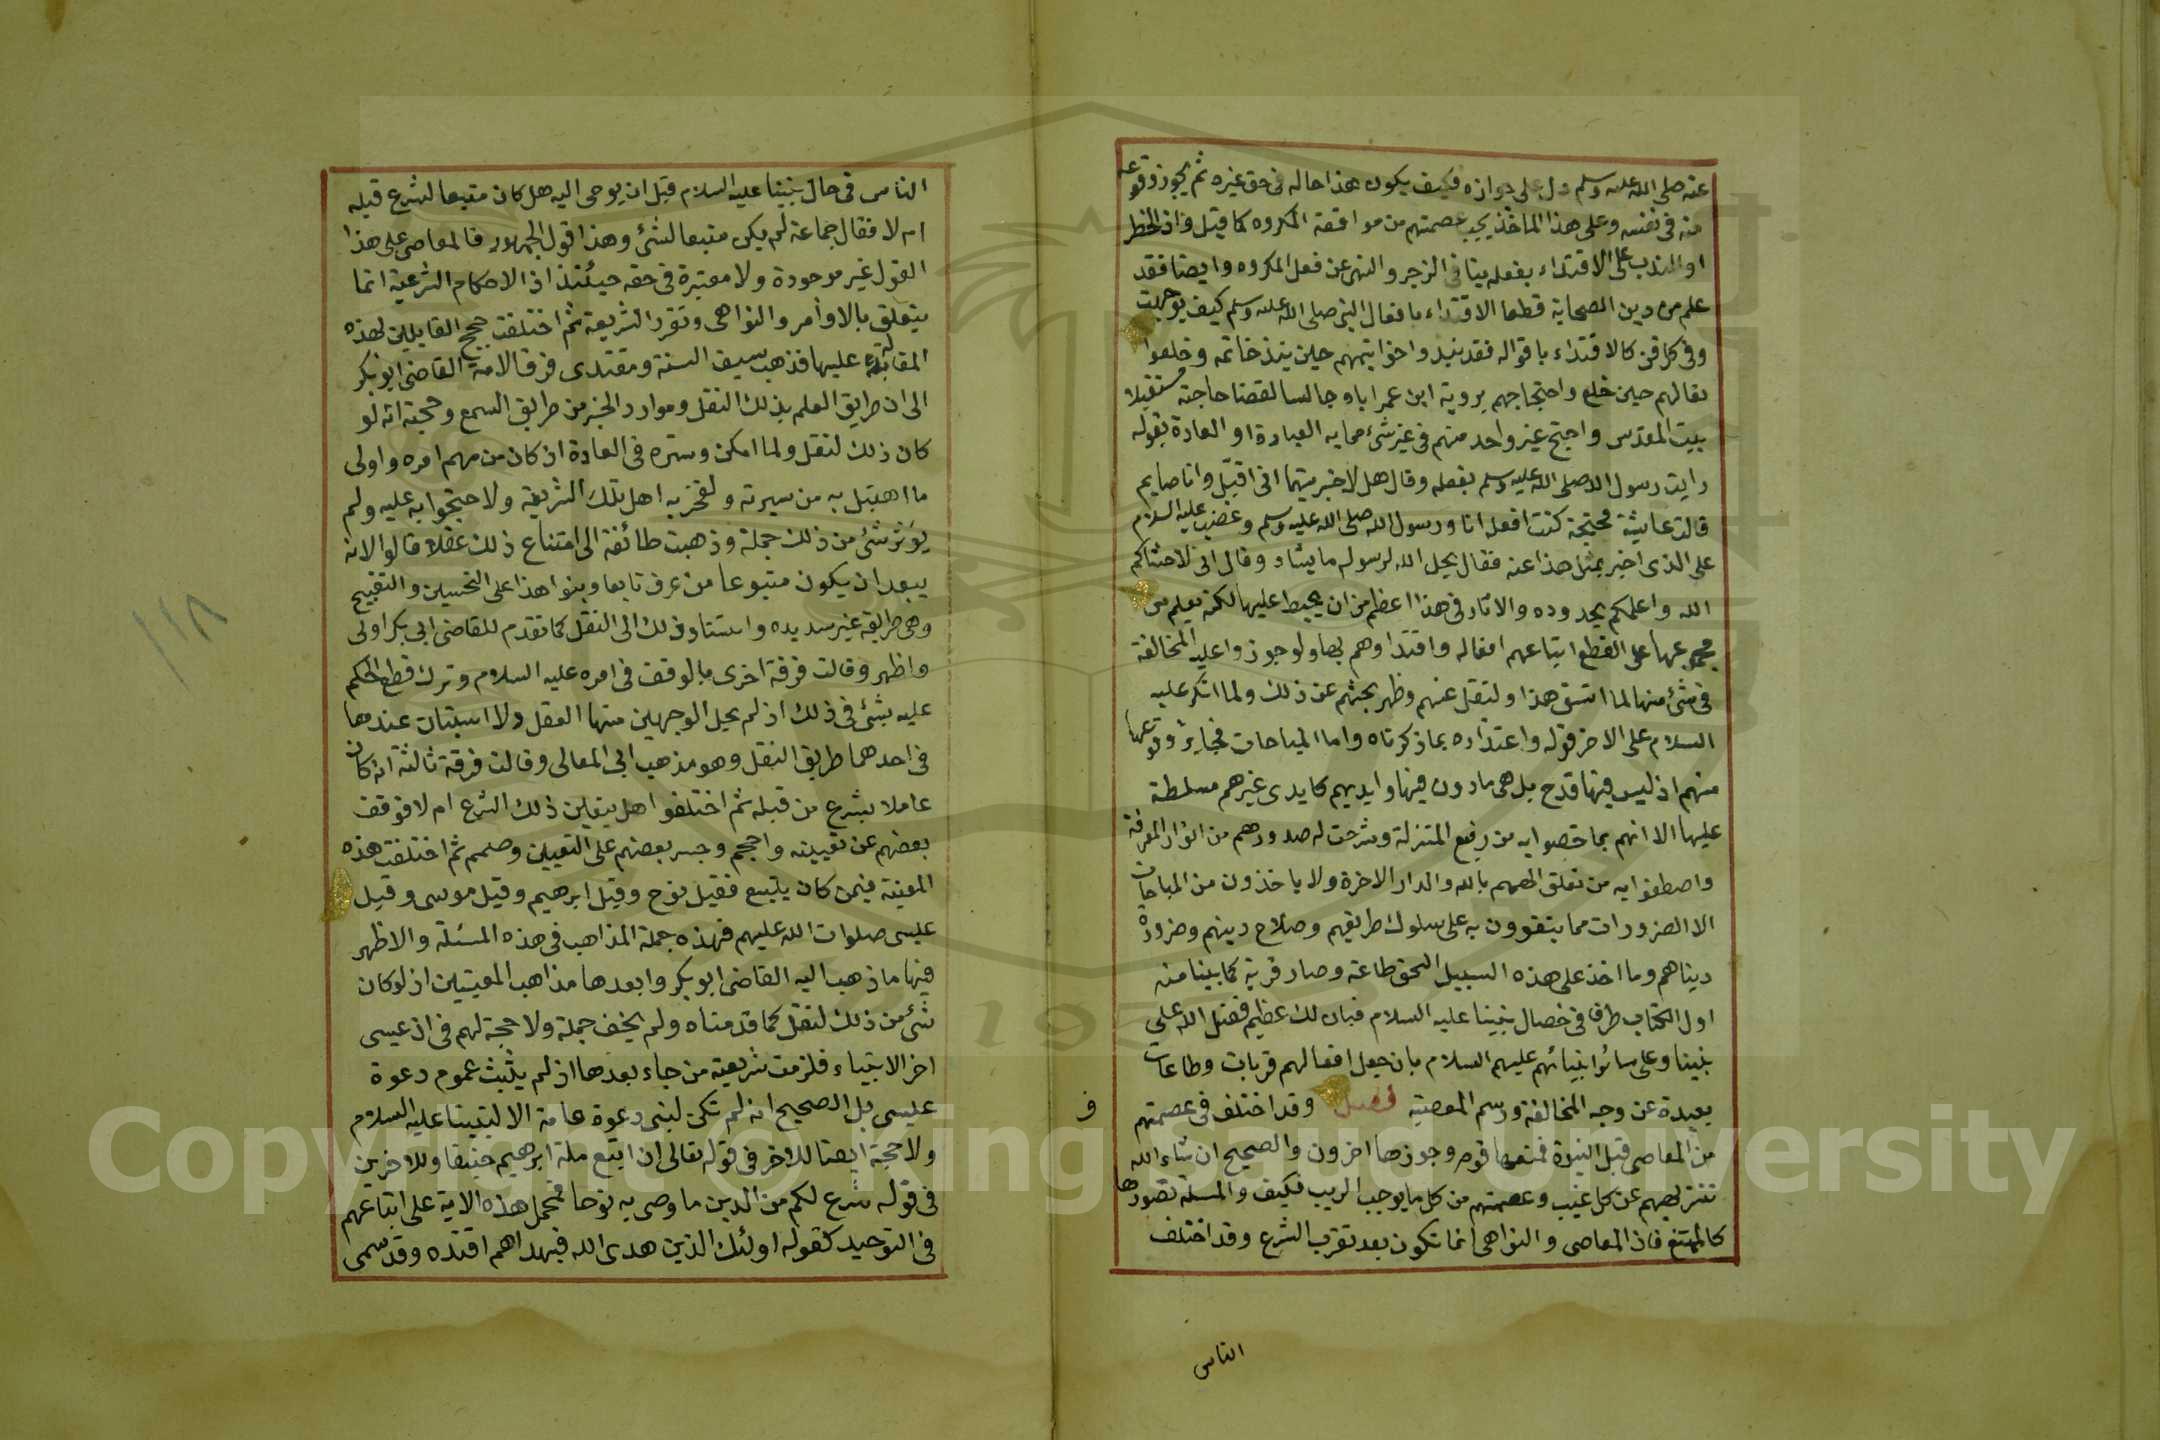 عنه صلى الله عليه وسلم دل على جوازه فكيف يكون هذا حاله فى حق غيره ثم يجوز وقوعه
منه فى نفسه وعلى هذا الماخذ يجب عصمتهم من مواقعة المكروه كما قيل واذ الحظر
او الندب على الاقتداء بفعله ينا فى الزجر والنهى عن فعل المكروه وايضا فقد
علم من دين الصحابة قطعا الاقتداء بافعال النبى صلى الله عليه وسلم كيف توجهت
وفى كل فن كالاقتداء باقواله فقد نبذوا خواتيمهم حين نبذ خاتمه وخلعوا
نعالهم حين خلع واحتجاجهم بروية ابن عمر اياه جالسا لقضا حاجته مستقبلا
بيت المقدس واحتج غير واحد منهم فى غير شئ مما به العبادة او العادة بقوله
رايت رسول الله صلى الله عليه وسلم يفعله وقال هل لا خبرتيها انى اقبل وانا صايم
قالت عايشة محتجة كنت افعله انا ورسول الله صلى الله عليه وسلم وغضب عليه السلام
على الذى اخبر بمثل هذا عنه فقال يحل الله لرسوله ما يشاء وقال انى لاخشاكم
الله واعلمكم بحدوده والاثار فى هذا اعظم من ان يحيط عليها لكنه يعلم من
مجموعها على القطع اتباعهم افعاله واقتداوهم بها ولو جوزوا عليه المخالفة
فى شئ منها لما اتسق هذا ولنقل عنهم وظهر بحثهم عن ذلك ولما انكر عليه
السلام على الاخر قوله واعتذاره بما ذكرناه واما المباحات فجايز وقوعها
منهم اذ ليس فيها قدح بل هى مادون فيها وايديهم كايدى غيرهم مسلطة
عليها الا انهم بما خصوا به من رفيع المنزلة وشرحت له صدورهم من انوار المعرفة
واصطفوا به من تعلق الهمهم بالله والدار الاخرة ولا ياخذون من المباحات
الا الضرورات مما يتقوون به على سلوك طريقهم وصلاح دينهم وضرورة
دنياهم وما اخذ على هذه السبيل التحق طاعة وصار قربة كما بينا منه
اول الكتاب طرفا فى خصال نبينا عليه السلام فبان لك عظيم فضل الله على
نبينا وعلى سائر انبيائهم عليهم السلام بان جعل افعالهم قربات وطاعات
بعيدة عن وجه المخالفة ورسم المعصية فصل وقد اختلف فى عصمتهم
من المعاصى قبل النبوة فمنعها قوم وجوزها اخرون والصحيح ان شاء الله
تنزيههم عن كل عيب وعصمتهم من كل ما يوجب الريب فكيف والمسئلة تصورها
كالممتنع فاذ المعاصى والنواهى انما تكون بعد تقرب الشرع وقد اختلف
الناس
ف
الناس فى حال نبينا عليه السلام قبل ان يوحى اليه هل كان متبعا لشرع قبله
ام لا فقال جماعة لم يكن متبعا لشئ وهذا قول الجمهور فالمعاصى على هذا
القول غير موجودة ولا معتبرة فى حقه حينئذ اذ الاحكام الشرعية انما
يتعلق بالاوامر والنواهى وتقرر الشريعة ثم اختلفت حجج القايلين لهذه
المقالة عليها فذهب سيف السنة ومقتدى فرق الامة القاضى ابو بكر
الى ان طريق العلم بذلك النقل وموارد الخبر من طريق السمع وحجته انه لو
كان ذلك لنقل ولما امكن وستره فى العادة اذ كان من مهم امره واولى
ما اهتبل به من سيرته ولفخر به اهل تلك الشريعة ولاحتجوا به عليه ولم
يؤثر شئ من ذلك جملة وذهبت طائفة الى امتناع ذلك عقلا قالوا لانه
يبعد ان يكون متبوعا من عرف تابعا وبنوا هذا على التحسين والتقبيح
وهى طريقة غير سديده واستناد ذلك الى النقل كما تقدم للقاضى ابى بكر اولى
واظهر وقالت فرقة اخرى بالوقف فى امره عليه السلام وترك قطع الحكم
عليه بشئ فى ذلك اذ لم يحل الوجهين منها العقل ولا استبان عندها
فى احدهما طريق النقل وهو مذهب ابى المعالى وقالت فرقة ثالثة انه كان
عاملا بشرع من قبله ثم اختلفوا هل يتعين ذلك الشرع ام لا فوقف
بعضهم عن تعيينه واحجم وجسر بعضهم على التعيين وصمم ثم اختلفت هذه
المعينة فيمن كان يتبع فقيل نوح وقيل ابرهيم وقيل موسى وقيل
عليسى صلوات الله عليهم فهذه جملة المذاهب فى هذه المسئلة والاظهر
فيها ما ذهب اليه القاضى ابو بكر وابعدها مذاهب المعينين اذ لو كان
شئ من ذلك لنقل كما قدمناه ولم يخف جملة ولا حجة لهم فى اذ عيسى
اخر الانبياء فلزمت شريعته من جاء بعدها اذ لم يثبت عموم دعوة
عليسى بل الصحيح انه لم تكن لنبى دعوة عامة الا لنبينا عليه السلام
ولا حجة ايضا للاخر فى قوله تعالى ان اتبع ملة ابرهيم حنيفا وللاخرين
فى قوله شرع لكم من الدين ما وصى به نوحا فتحمل هذه الاية على اتباعهم
فى التوحيد كقوله اولئك الذين هدى الله فبهداهم اقتده وقد سمى
١١٨
Copyright © King Saud University
195